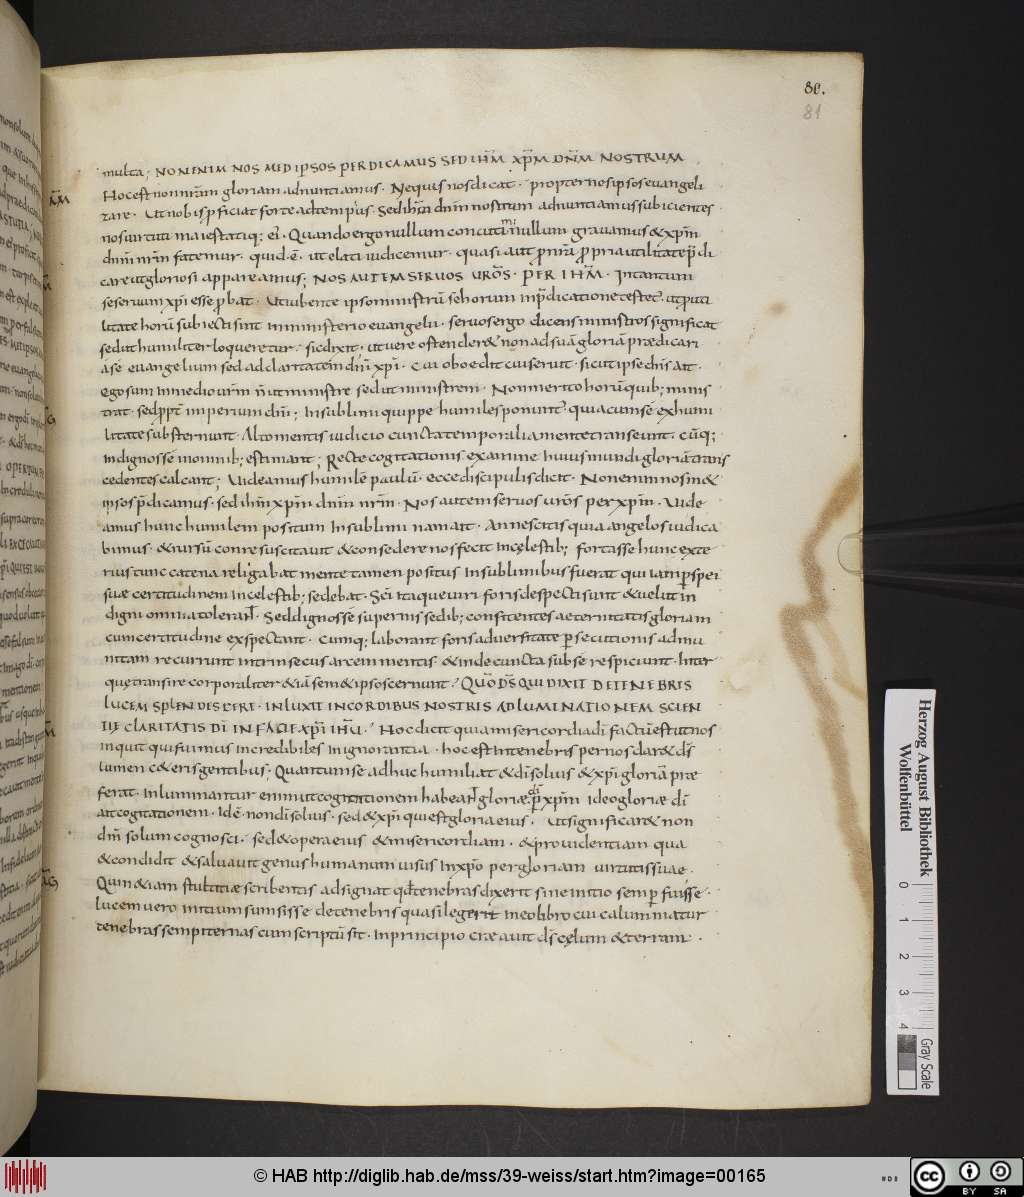 80.
81
multa; NON ENIM NOS MED IPSOS PERDICAMUS SED IHM̅ XPM̅ DNM̅ NOSTRUM
Hoc est non nr̅am gloriam adnuntiamus. Ne quis nos dicat. propter nos ipsos euangeli
zare. Ut nobis ꝑficiat forte ad tempus. Sed ihm̅ dnm̅ nostrum adnuntiamus subicientes
nos uirtuti maiestatiq; ei. Quando ergo nullum nullum grauamus & xpm̅
dnm̅ nrm̅ fatemur. quid ē. ut elati iudicemur. quasi aut ꝓ nr̅a ꝓpria utilitate p̅di
care ut gloriosi appareamus; NOS AUTEM SERUOS UROS̅. PER IHM̅. In tantum
se seruum xpi̅ esse ꝓbat. Ut iubente ipso ministrū se horum in p̅dicatione testet̅. ut ꝑ uti
litate horū subiecti sint in ministerio euangelii. seruos ergo dicens ministros significat
sed ut humiliter loqueretur. sic dixit. ut uere ostender& non ad suā gloriā prædicari
a se euangelium sed ad claritatem dn̅i xpi̅. Cui oboedit cui seruit. sicut ipse dn̅s ait.
ego sum in medio ur̅m n̅ ut ministrer sed ut ministrem. Non merito horū quib; minis
trat. sed ꝓpt̅ imperium dn̅i; In sublimi quippe humiles ponunt̅ quia cum se ex humi
litate substernunt. Alto mentis iudicio cuncta temporalia mente transeunt. cūq;
indignos se in omnib; estimant; Recte cogitationis examine huius mundi gloriā trans
cedentes calcant; Uideamus humilē paulū. ecce discipulis dicit. Non enim nosm&
ipsos p̅dicamus. sed ihm̅ xpm̅ dnm̅ nrm̅. Nos autem seruos uros̅ per xpm̅. Uide
amus hunc humilem positum In sublimi nam ait. An nescitis quia angelos iudica
bimus. & rursū conresuscitauit & consedere nos fecit In cęlestib; fortasse hunc exte
rius tunc catena religabat mente tamen positus In sublimibus fuerat qui iam ꝑ spei
suæ certitudinem In celestib; sedebat. Sc̅i itaque uiri foris despecti sunt & uelut in
digni omnia tolerant. Sed dignos se supernis sedib; confitentes aeternitatis gloriam
cum certitudine exspectant. Cumq; laborant foris aduersitate ꝑsecutionis admu
nitam recurrunt intrinsecus arcem mentis. & inde cuncta sub se respiciunt. Inter
que transire corporaliter & iā sem& ipsos cernunt. QUŌ DS̅ QUI DIXIT DE TENEBRIS
LUCEM SPLENDESCERE. INLUXIT IN CORDIBUS NOSTRIS AD LUMINATIONEM SCIEN
TIE CLARITATIS DI̅ IN FACIE XPI̅ IHU̅. Hoc dicit quia misericordia di̅ factū est ut nos
inquit qui fuimus incredibiles In ignorantia. hoc est In tenebris per nos dar& ds̅
lumen c&eris gentibus; Quantum se adhuc humiliat & di̅ solius & xpi̅ gloriā præ
ferat. Inluminantur enim ut cogitationem habeant gloriæ di̅ ꝑ xpm̅ Ideo gloriæ di̅
ait cogitationem. Idē. non di̅ solius. sed & xpi̅ qui est gloria eius. Ut significar& non
dm̅ solum cognosci. sed & opera eius & misericordiam. & prouidentiam qua
& condidit & saluauit genus humanum uisus In xpo̅ per gloriam uirtutis suae.
Quin &iam stultitiæ scribentis adsignat qd̅ tenebras dixerit sine initio semꝑ fuisse.
lucem uero initium sumsisse de tenebris quasi legerit in eo libro cui calumniatur
tenebras sempiternas cum scriptū sit. In principio creauit ds̅ cęlum & terram.
Herzog August Bibliothek
Wolfenbüttel
0
1
2
3
4
Gray Scale
© HAB http://diglib.hab.de/mss/39-weiss/start.htm?image=00165
cc BY SA